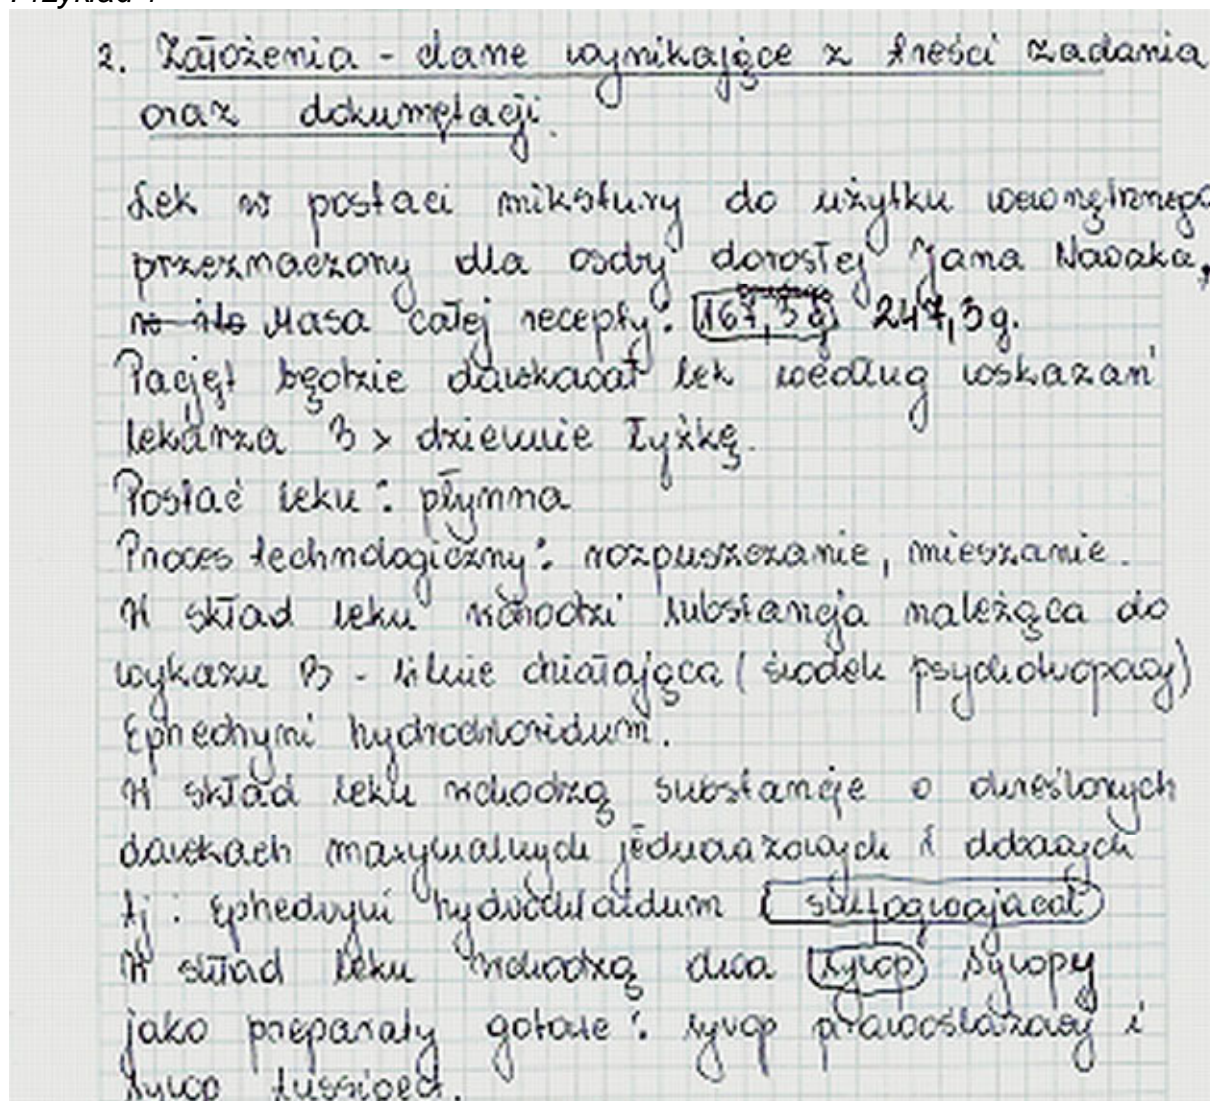 Przykład 1
2. Założenia - dane wynikające z treści zadania
oraz dokumętacji.
Lek w postaci mikstury do użytku wewnętrznego
przeznaczony dla osoby dorosłej Jana Nowaka,
Masa całej recepty: 167,3 g 247,3 g.
Pacjęt będzie dawkował lek według wskazań
lekarza 3 x dziennie łyżkę.
Postać leku: płynna
Proces technologiczny: rozpuszczanie, mieszanie.
W skład leku wchodzi substancja należąca do
wykazu B - silnie działająca (środek psychotropowy)
Ephedryni hydrochloridum.
W skład leku wchodzą substancje o określonych
dawkach maxymalnych jednorazowych i dobowych
tj: Ephedryni hydrochloridum
W skład leku wchodzą dwa syrop syropy
jako preparaty gotowe: syrop prawoślazowy i
syrop tussipect.